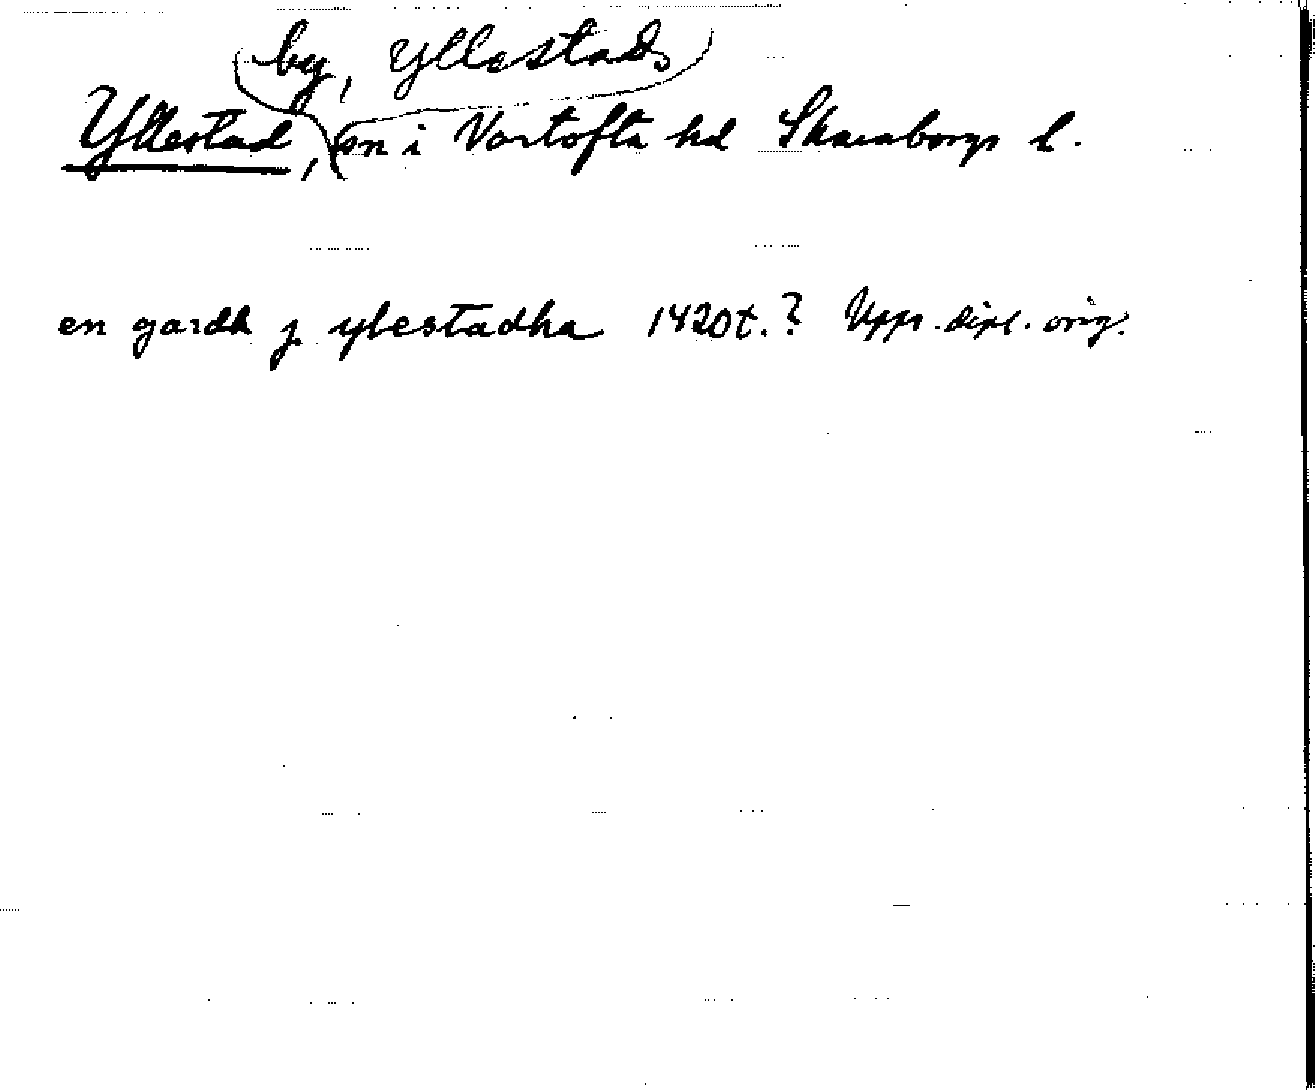 by, Yllestads
Yllestad, sn i Vartofta hd Skaraborgs l.
en gardh j ylestadha 1420t.? Upps. dipl. orig.